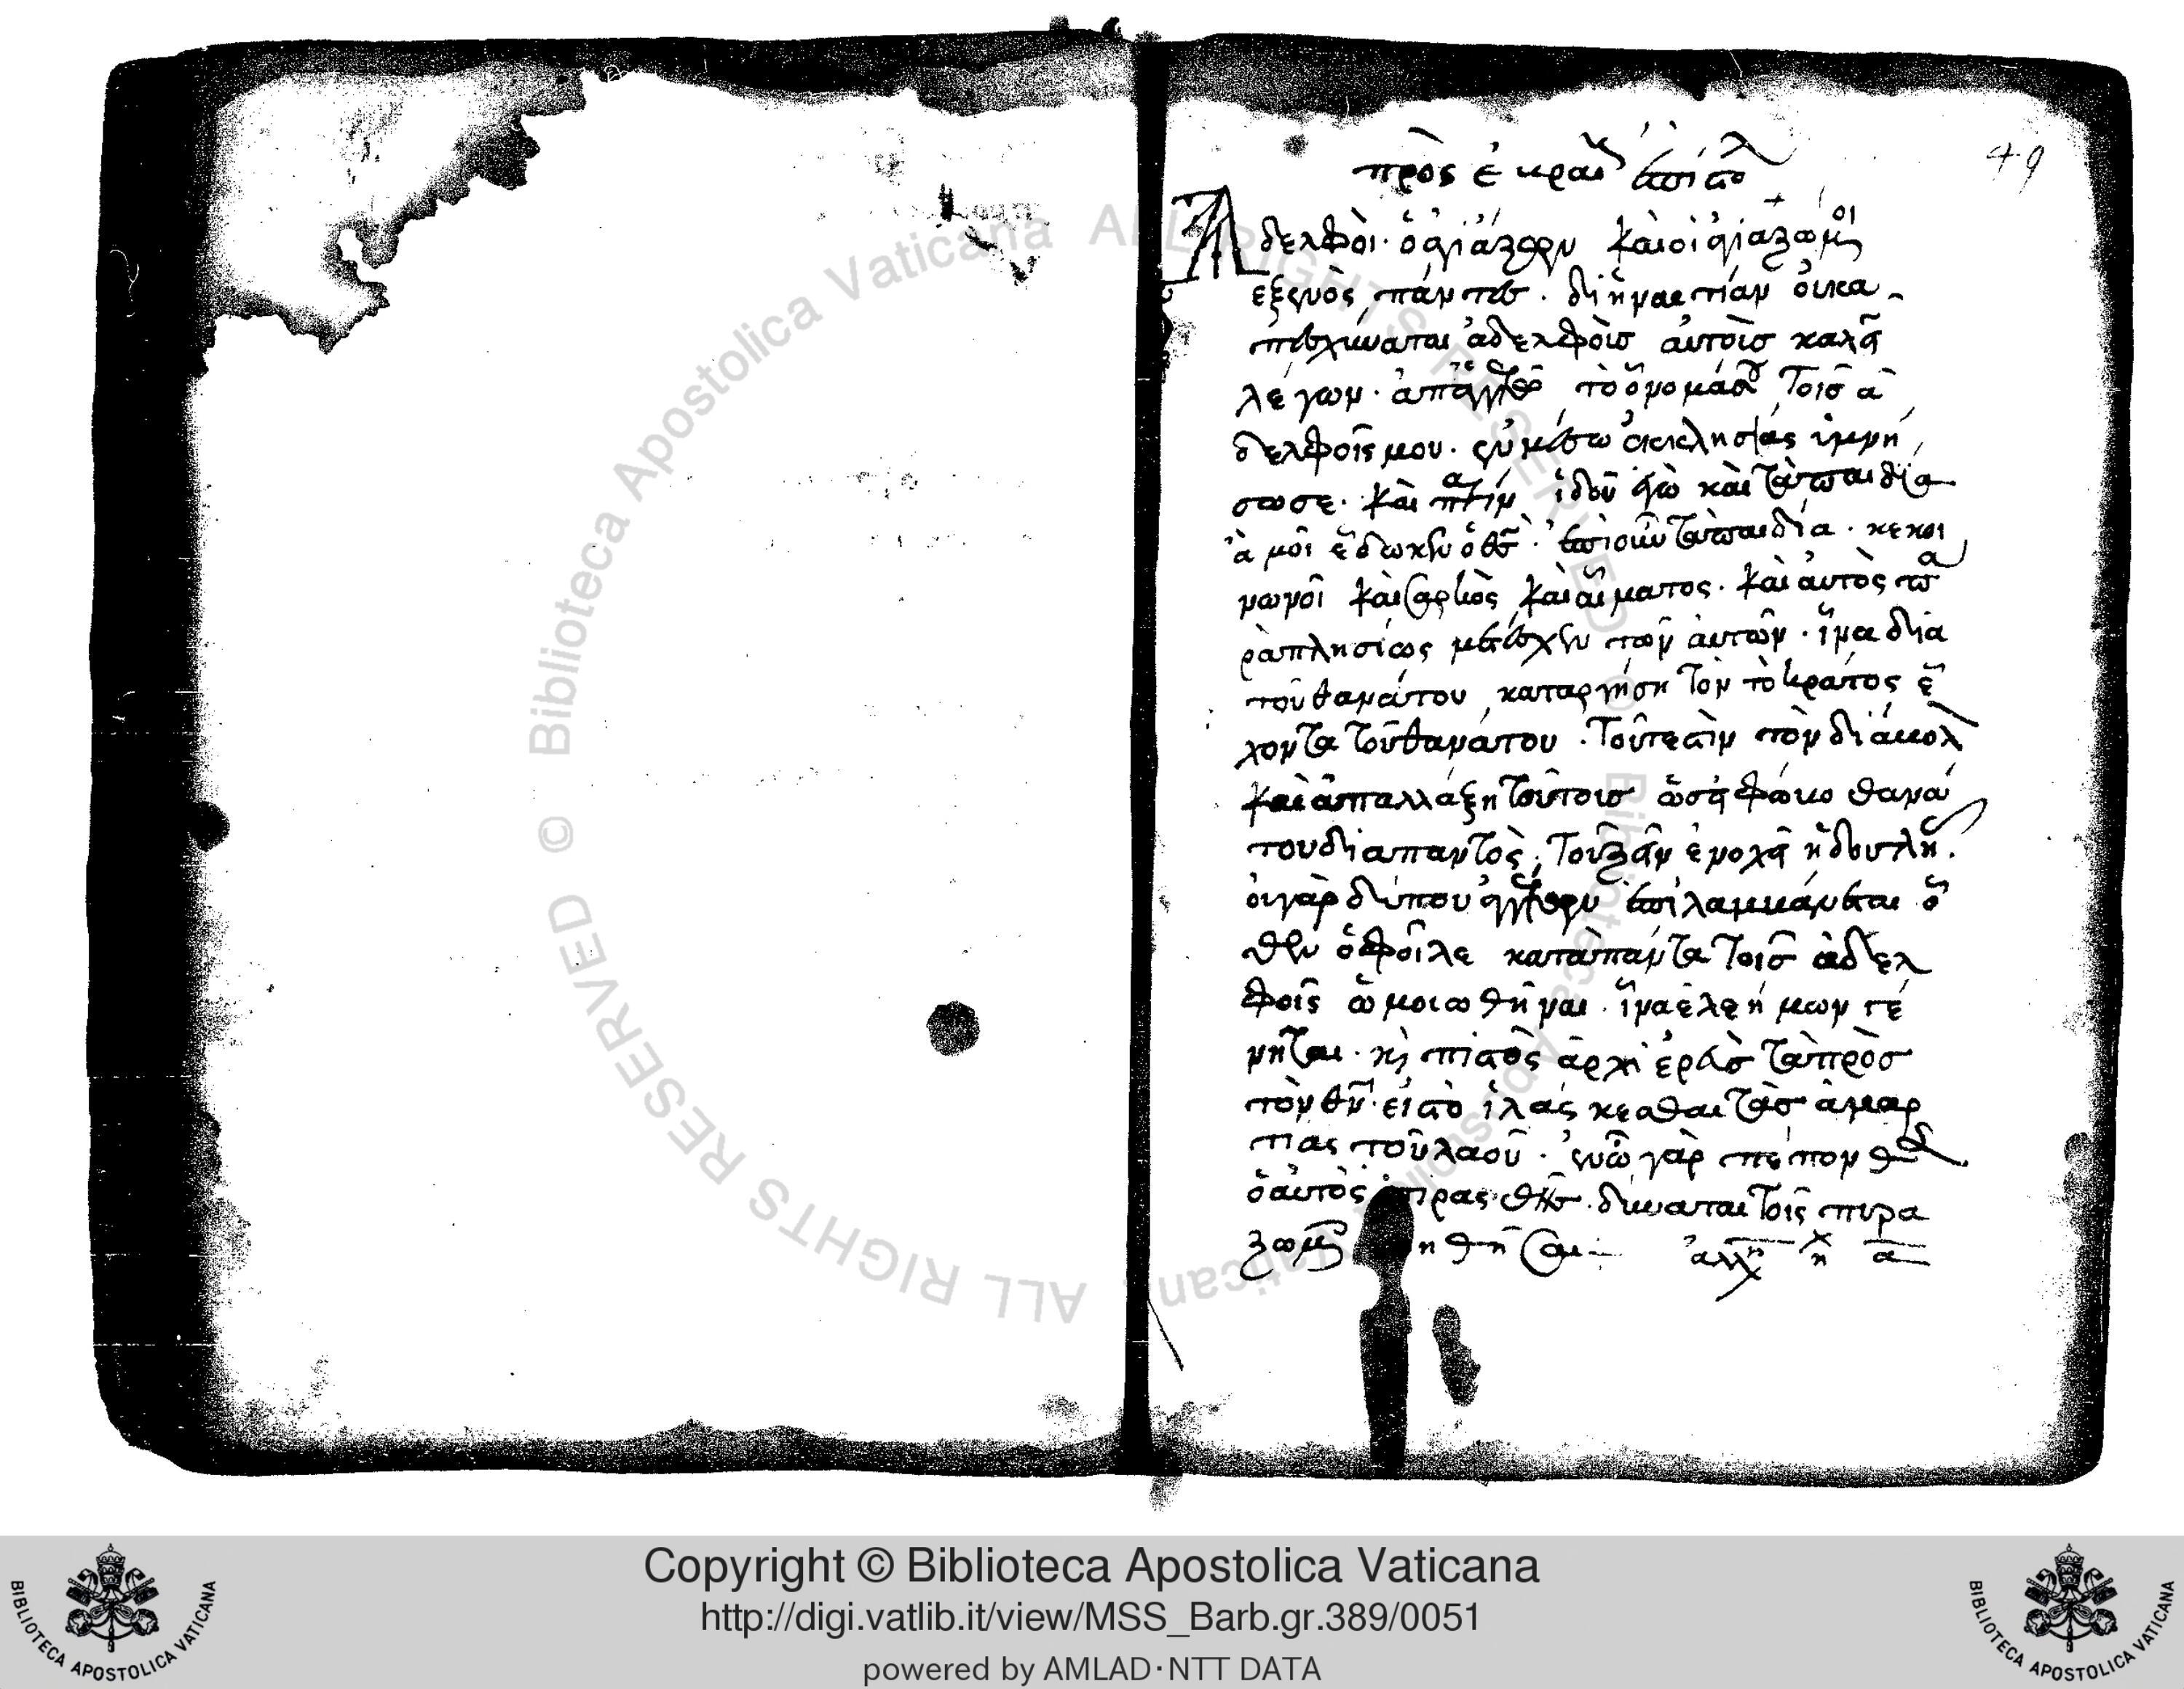 πρὸς ἑκραι ἐπιστολ
49
Ἀδελφοὶ· ὁ ἁγιάζων καὶ οἱ ἁγιαζωμοι
ἐξενὸς πάντες. δι ἣν αιτίαν οὐκ ἐ
πεσχύναται ἀδελφοὺς αὐτοὺς καλεῖ
λέγων· ἀπαγγελῶ τὸ ὄνομά σου τοῖς ἀ
δελφοῖς μου· ἐν μέσω ἐκκλησίας ὑμνή
σω σε· καὶ πάλιν ἰδοῦ ἐγὼ καὶ τὰ παιδία
ἅ μοι ἔδωκεν ὁ θς· ἐπὶ οὖν τὰ παιδία· κεκοι
νωνοῖ καὶ σαρκὸς καὶ αἵματος· καὶ αὐτὸς πα
ραπλησίως μετέσχεν τῶν αὐτῶν· ἵνα δια
τοῦ θανάτου καταργήση τὸν τὸ κράτος ἔ
χοντα τοῦ θανάτου· τοῦτεστὶν τὸν διάκολ
καὶ ἀπαλλάξη τούτοις ὥσει φώκο θανά
του διαπαντὸς τοῦ ζῆν ἐνοχῆ ἠ δουλεί.
οὐ γὰρ δίπου ἀγγέλων ἐπιλαμκάνεται ὅ
θεν ὄφοιλε κατὰ πάντα τοῖς ἀδελ
φοῖς ὡμοιωθῆναι· ἵνα ἐλεήμων γέ
νηται· κὶ πιστὸς ἀρχιέρεὺς τὰ πρὸς
τὸν θν· εἰς τὸ ἱλάσκεσθαι τὰς ἁμαρ
τίας τοῦ λαοῦ· ἐν ὧ γὰρ πέπονθεν
ὁ αὐτὸς πιρασθεὶς· δύναται τοῖς πυρα
ζωμ ηθῆσαι
Copyright © Biblioteca Apostolica Vaticana
http://digi.vatlib.it/view/MSS_Barb.gr.389/0051
powered by AMLAD·NTT DATA
BIBLIOTECA APOSTOLICA VATICANA
BIBLIOTECA APOSTOLICA VATICANA
© Biblioteca Apostolica Vaticana ALL RIGHTS RESERVED
© Biblioteca Apostolica Vaticana ALL RIGHTS RESERVED